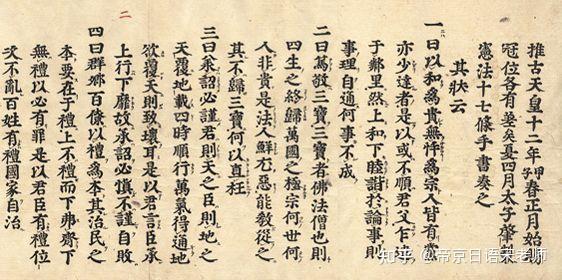 推古天皇十二年甲子春正月始賜
冠位各有差矣夏四月太子肇製
憲法十七條手書奏之
其狀云
一曰以和爲貴無忤爲宗人皆有黨
亦少達者是以或不順君父乍違
于鄰里然上和下睦諧於論事則
事理自通何事不成
二曰篤敬三寶三寶者佛法僧也則
四生之終歸萬國之極宗何世何
人非貴是法人鮮尤惡能敎從之
其不歸三寶何以直枉
三曰承詔必謹君則天之臣則地之
天覆地載四時順行萬氣得通地
欲覆天則致壞耳是以君言臣承
上行下靡故承詔必慎不謹自敗
二
四曰群卿百僚以禮爲本其治民之
本要在于禮上不禮而下弗齊下
無禮以必有罪是以君臣有禮位
次不亂百姓有禮國家自治
知乎 @帝京日语宋老师